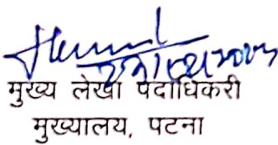 मुख्य लेखा पदाधिकरी
मुख्यालय, पटना